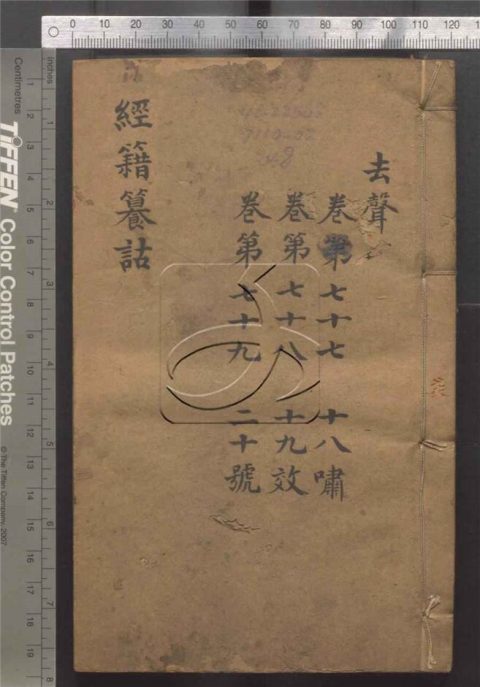 去聲
卷第七十七 十八嘯
卷第七十八 十九效
卷第七十九 二十號
經籍纂詁
0 10 20 30 40 50 60 70 80 90 100 110 120
inches
Centimetres
TIFFEN Color Control Patches
© The Tiffen Company, 2007
1 2 3 4 5 6 7 8 9 10 11 12 13 14 15 16 17 18 19
1 2 3 4 5 6 7 8